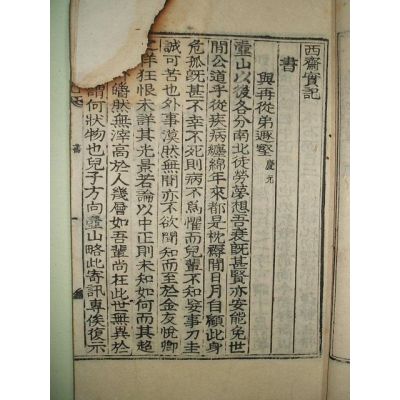 西齋實記
書
與再從弟遯壑 慶光
壺山以後各分南北徒勞夢想吾衰旣甚賢亦安能免世
間公道乎從疾病纏綿年來都是枕褥間日月自顧此身
危孤旣甚不幸不死則病不爲懼而兒輩不知妄事刀圭
誠可苦也外事漠然無聞亦不欲聞知而至於金友悅卿
狂恨未詳其光景若論以中正則未知如何而其超
然無滓高於人幾層如吾輩尙在此世無異於
謂何狀物也兒子方向壺山略此寄訊專俟復示
書 一